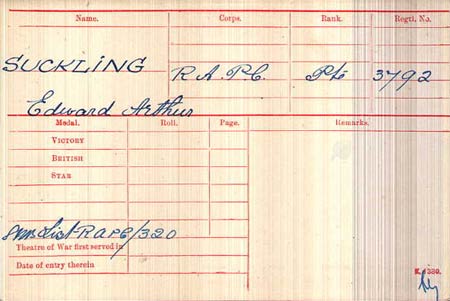 Name. Corps. Rank. Regtl. No.
SUCKLING R.A.P.C. Pte 3792
Edward Arthur
Medal. Roll. Page. Remarks.
VICTORY
BRITISH
STAR
List RAPC/320
Theatre of War first served in
Date of entry therein
K. 380.